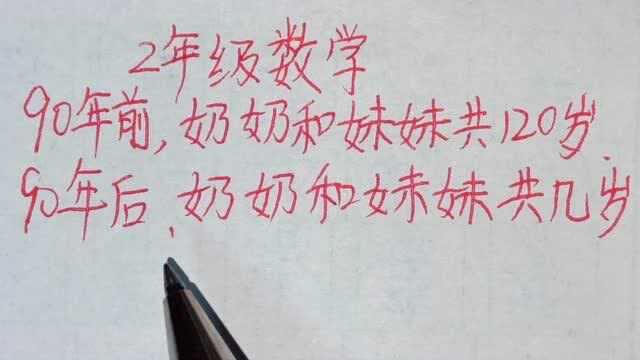 2年级数学
90年前,奶奶和妹妹共120岁.
90年后,奶奶和妹妹共几岁